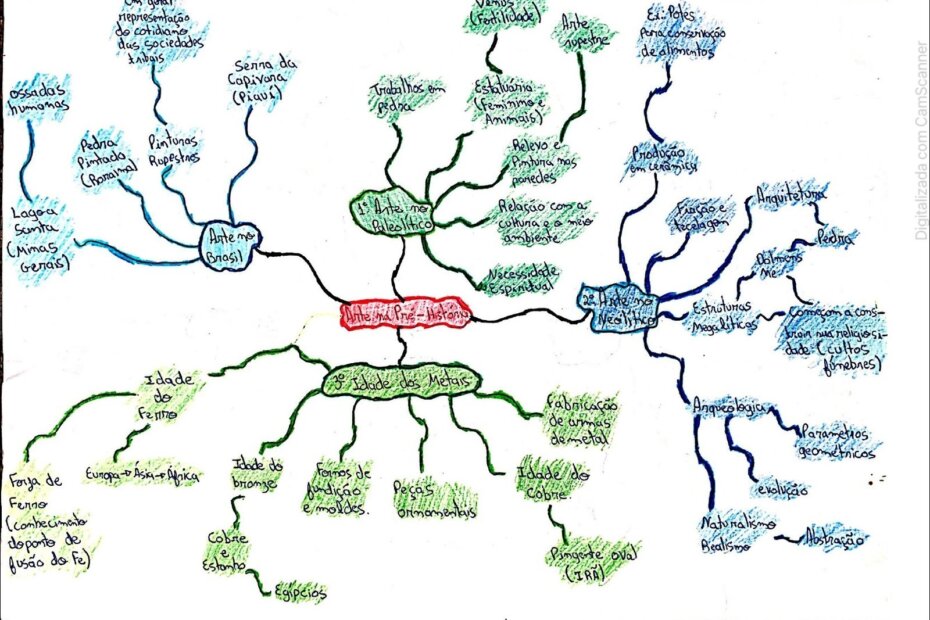 Em geral
representação
do cotidiano
das sociedades
tribais
Serra da
Capivara
(Piauí)
ossadas
humanas
Pedra
Pintada
(Roraima)
Pinturas
Rupestres
Lagoa
santa
(Minas
Gerais)
Arte no
Brasil
Vênus
(Fertilidade)
Arte
rupestre
Trabalhos em
pedra
Estatuária
(Feminino e
Animais)
Relevo e
Pintura nas
paredes
1º Arte no
Paleolítico
Relação com a
cultura e o meio
ambiente
Necessidade
Espiritual
Ex: Potes
para conservação
de alimentos
Produção
em cerâmica
Fiação e
tecelagem
Arquitetura
Pedra
Dolmens
Me
2º Arte no
Neolítico
Estruturas
Megalíticas
Começam a cons-
truir sua religiosi-
dade (cultos
fúnebres)
Arqueologica
Parâmetros
geométricos
evolução
Naturalismo
Realismo
Abstração
Arte na Pré-História
3º Idade dos Metais
Idade
do
Ferro
Europa→Ásia→África
Forja de
Ferro
(conhecimento
do ponto de
fusão do Fe)
Idade do
bronze
Cobre
e
Estanho
Egípcios
Fornos de
fundição
e moldes.
Peças
ornamentais
Idade do
cobre
Pingente oval
(IRÃ)
Fabricação
de armas
de metal
Digitalizada com CamScanner